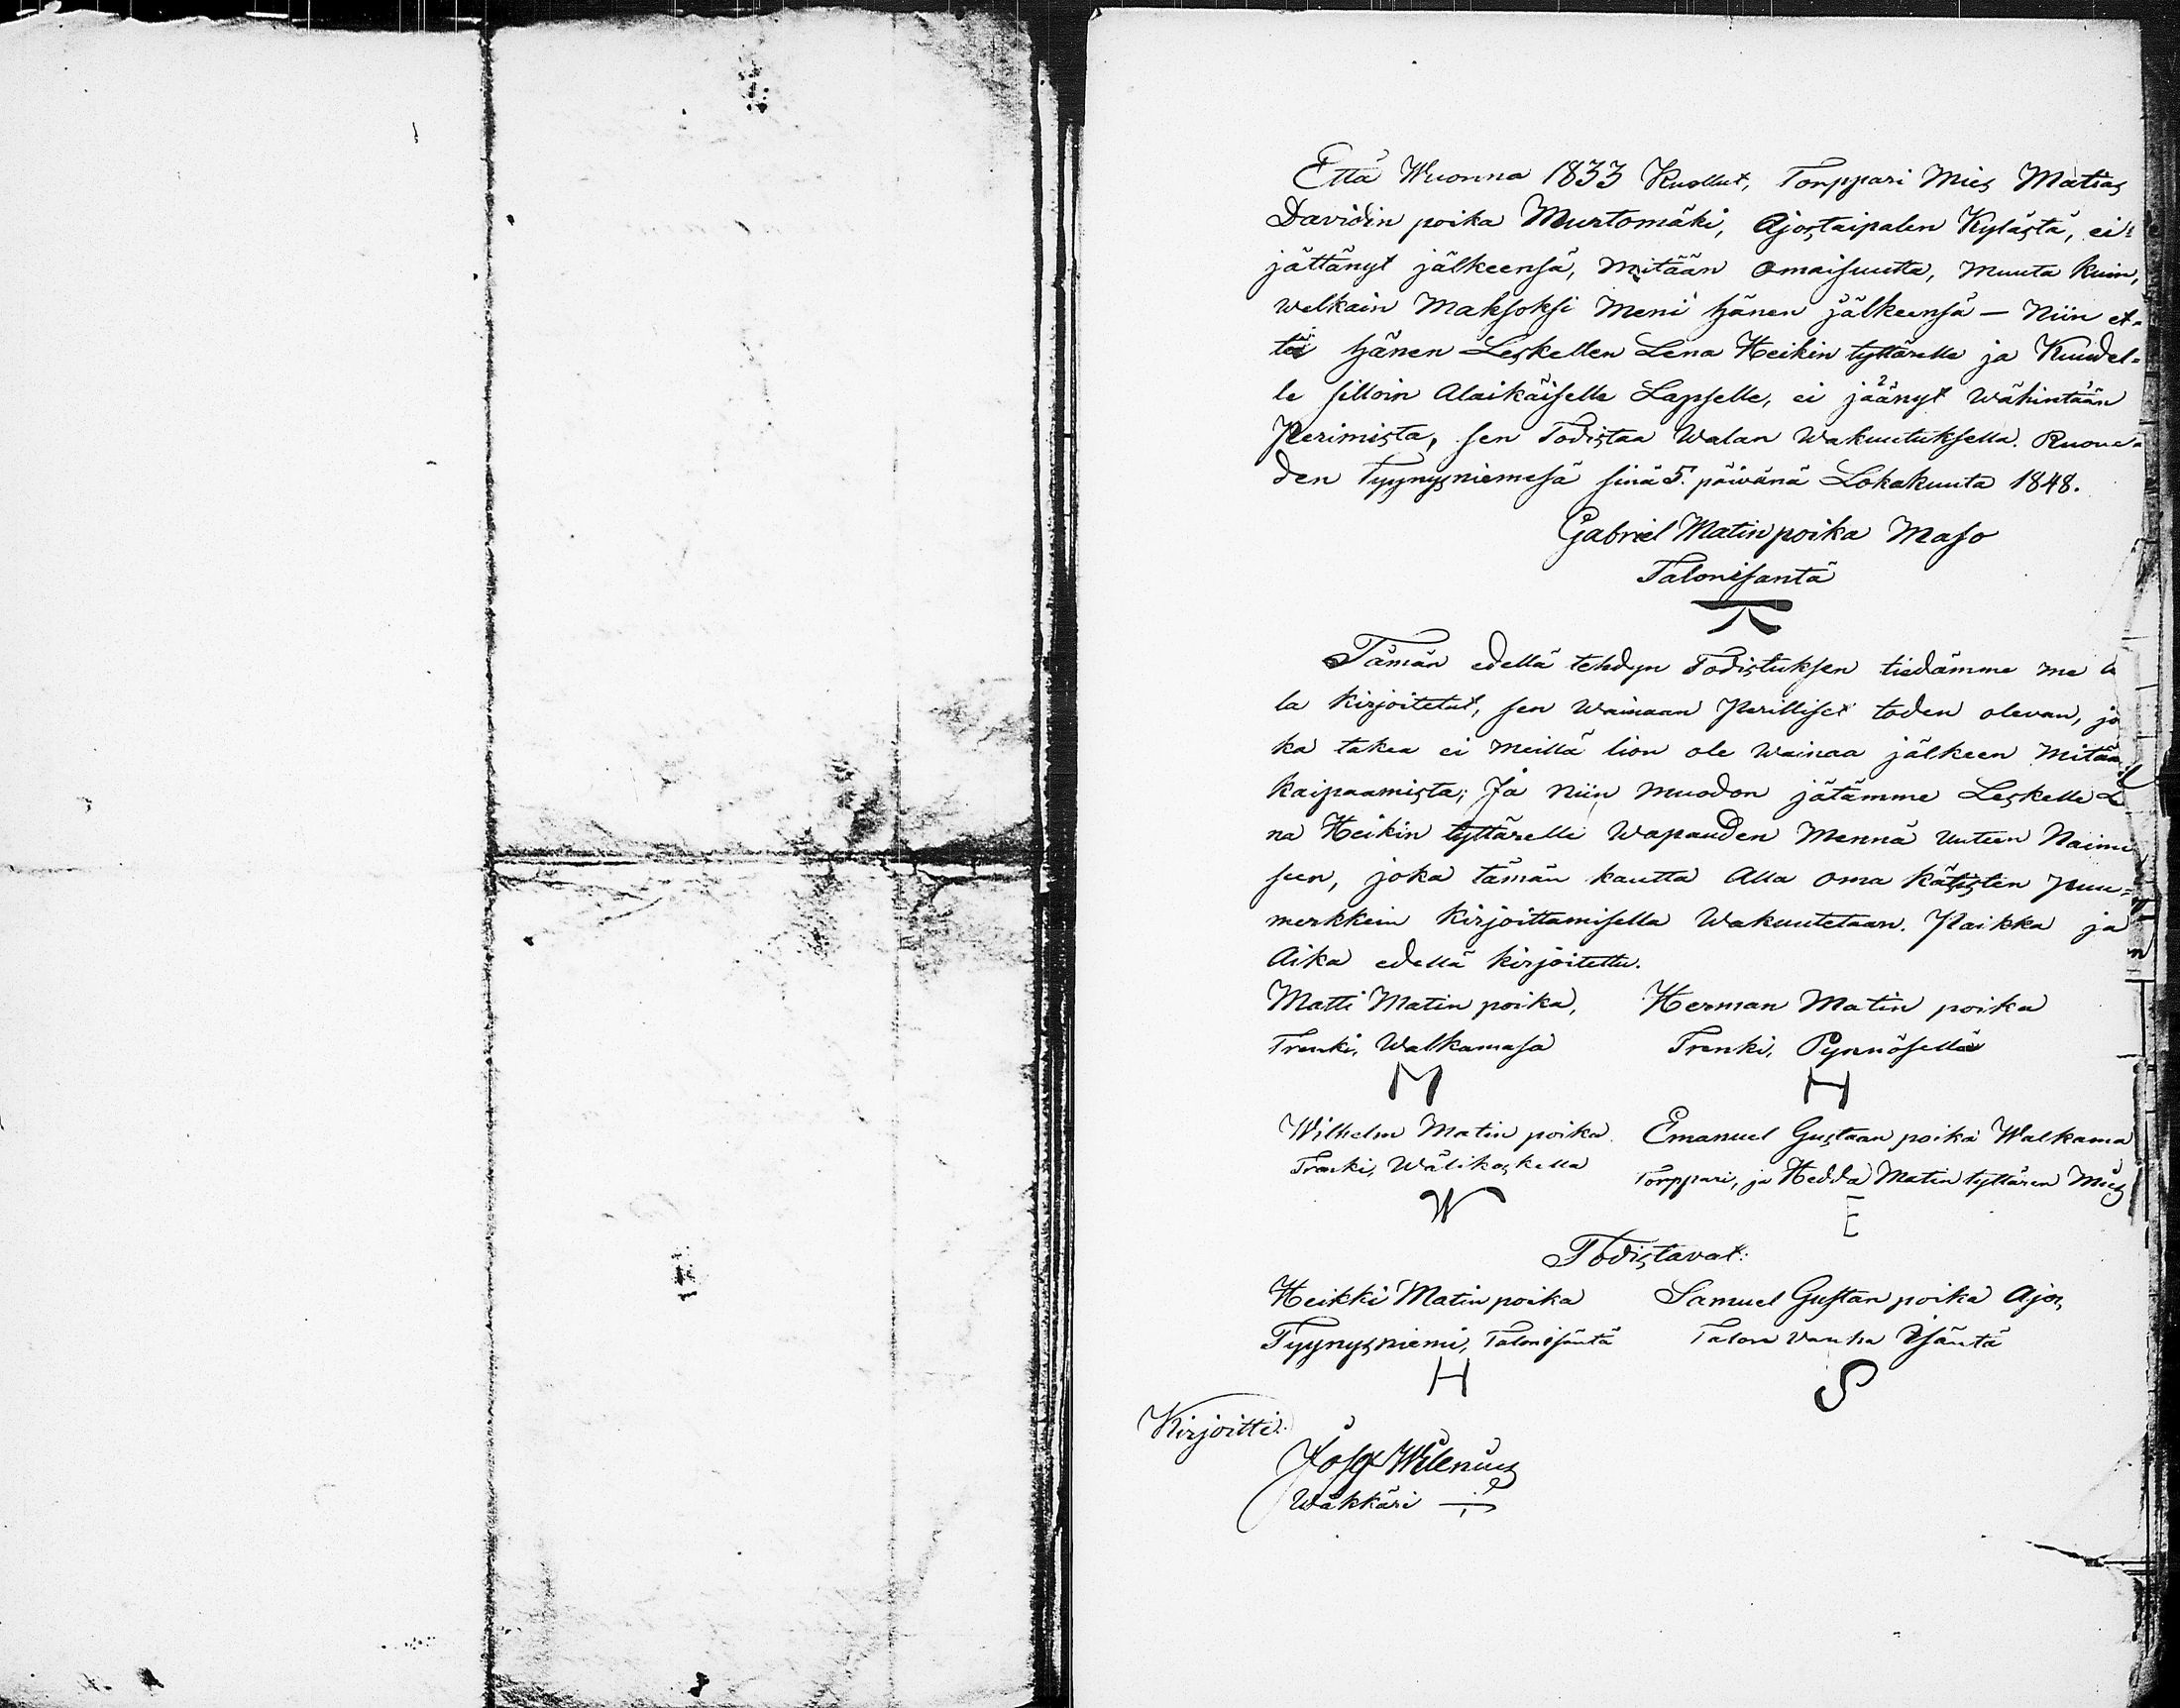 Että Wuonna 1833 Kuollut, Torppari Mies Matias
Davidin poika Murtomäki, Ajostaipalen Kylästä, ei
jättänyt jälkeensä, mitään Omaisuutta, muuta kuin,
welkain Maksoksi Meni hänen jälkeensä — Niin et-
tei hänen Leskellen Lena Heikin tyttärelle ja Kuudel-
le silloin Alaikäiselle Lapselle, ei jäänyt wähintään
Perimista, sen Todistaa Walan Wakuutuksella. Ruowe-
den Tyynysniemesä sinä 5. päiwänä Lokakuuta 1848.
Gabriel Matin poika Maso
Talonisantä
Tämän edellä tehdyn Todistuksen tiedämme me
la kirjoitetut, sen Wainaan Perilliset toden olevan, jo
ka takea ei meillä lion ole Wainaa jälkeen Mitää
kaipaamista; Ja niin muodon jätämme Leskelle Le
na Heikin tyttärelle Wapauden Mennä Uuteen Naimi
seen, joka tämän kautta Alla oma kätisten puu-
merkkein Kirjoittamisella Wakuutetaan. Paikka ja
Aika edellä kirjoitettu.
Matti Matin poika, Herman Matin poika
Trenki, Walkamasa Trenki, Pynnösellä
M H
Wilhelm Matin poika Emanuel Gustaan poika Walkama
Trenki, Wälikoskella Torppari, ja Hedda Matin tyttären Mies
W E
Todistavat:
Heikki Matin poika Samuel Gustan poika Ajos
Tyynysniemi, Talonisäntä Talon Vanha Isäntä
H S
Kirjoitti:
Josef Wilenius
Wäkkäri